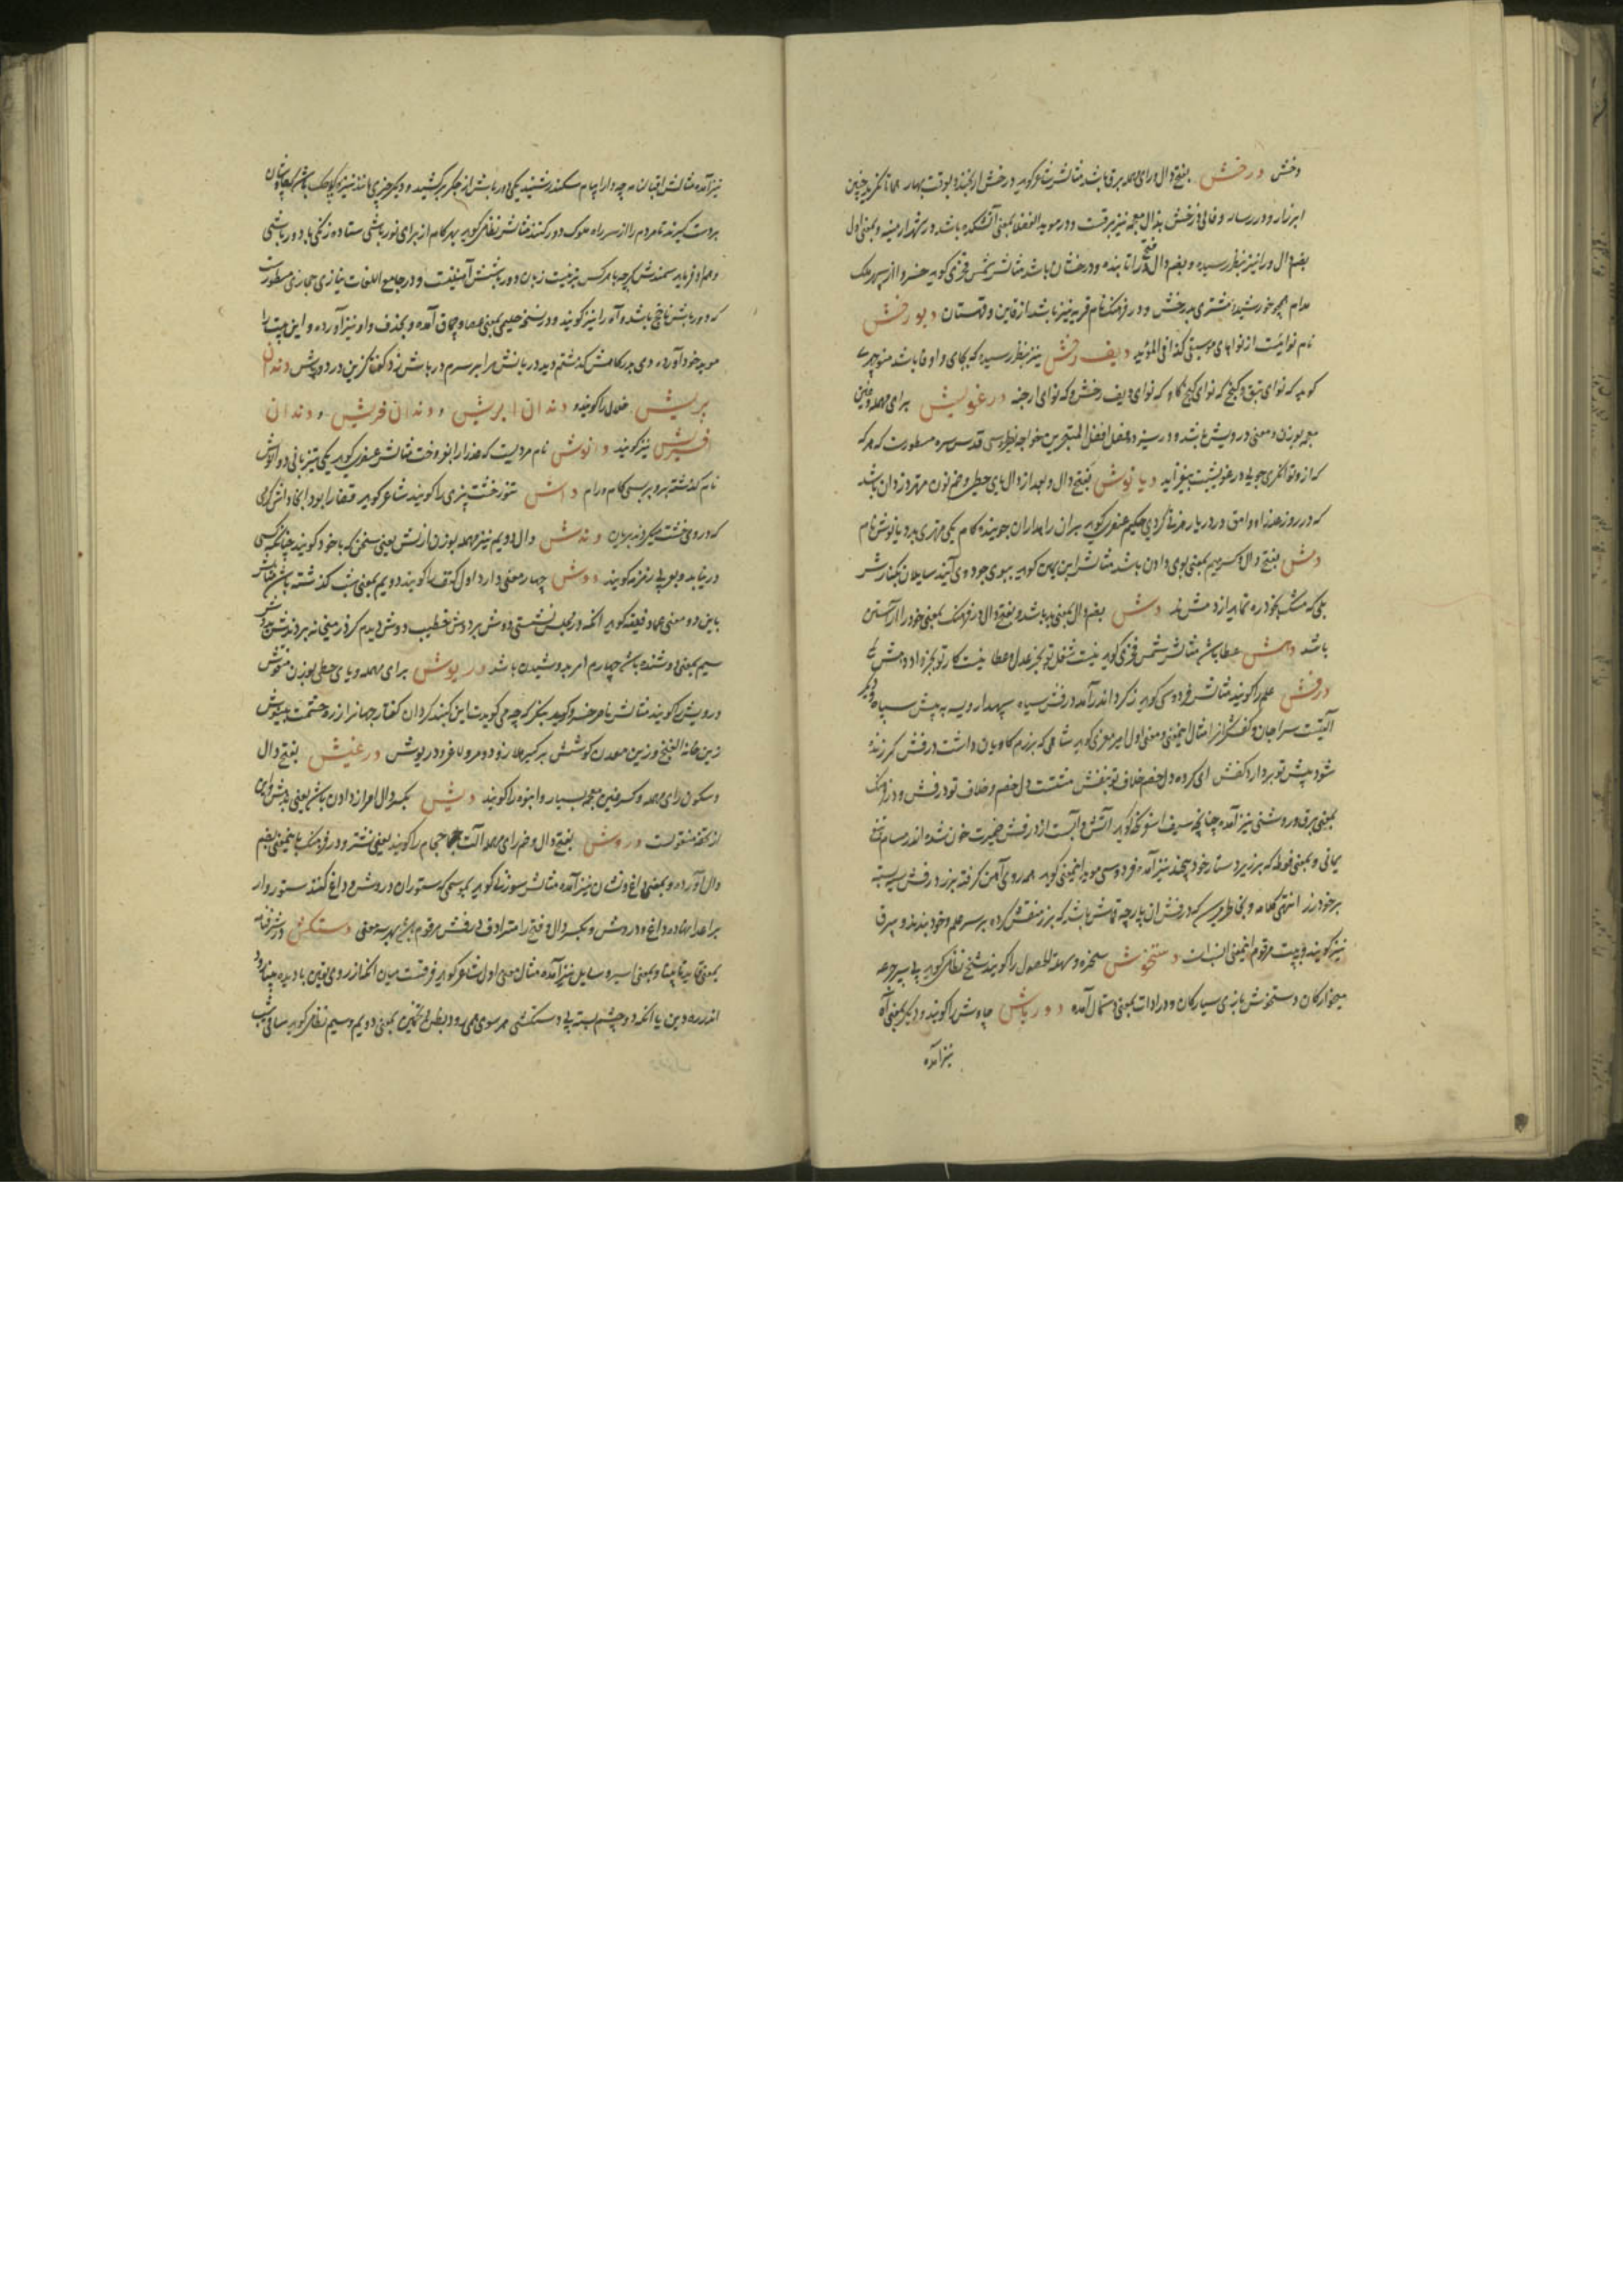 وخش درخش بفتح دال و رای مهمله برق باشد مثالش شاعر گوید درخش ار نخندد بوقت بهار همانا نگرید چنین
ابر زار و در رساله وفائی ذرخش بذال معجمه نیز برقست و در موید الفضلا بمعنی آتشکده باشد در شهر ارمینه و بمعنی اول
بضم دال و را نیز بنظر رسیده و بضم دال و فتح را تابنده و درخشان باشد مثالش شمس فخری گوید خسروا از سپهر ملک
مدام همچو خورشید و مشتری بدرخش و در فرهنگ نام قریه نیز باشد از قاین و قهستان دیورخش
نام نوائیست از نواهای موسیقی کذا فی المؤید دیف رخش نیز بنظر رسیده که بجای واو فا باشد منوچهری
گوید که نوای و گنج که نوای گنج گاو که نوای دیف رخش و که نوای ارجنه درغویش برای مهمله و غین
معجمه بوزن و معنی درویش باشد و در خواجه قدس سره مسطورست که هر که
که از و توانگری جوید درغویشیت بیفزاید دیانوش بفتح دال و بعد از دال یای حطی و ضم نون مهتر دزدان باشد
که در روزگار عذرا و وامق در دریا رهزنی کردی حکیم عنصری گوید بران راهداران جوینده کام یکی مهتری بد دیانوش نام
دمش بفتح دال و کسر میم بمعنی بوی دادن باشد مثالش ابن یمین گوید ببوی جود وی آیند سایلان بکنارش
بلی که مشک بخود ره نماید از دمش خود دش بضم دال بمعنی بد باشد و بفتح دال در فرهنگ بمعنی خود را آراستن
باشد دهش عطا باشد مثالش شمس فخری گوید نیست شغل تو بجز عدل و عطا نیست کار تو بجز داد و دهش
درفش علم را گویند مثالش فردوسی گوید ز گرد اندر آمد درفش سیاه سپهدار ویسه به پیش سپاه و دیگر
آلتیست سراجان و کفشگر از امثال اینمعنی و معنی اول امیر معزی گوید شاهی که برزم کاویان داشت درفش گر زنده
شود پیش تو بردارد کفش ای کرده دل خصم خلاف تو بنفش مشتست دل خصم و خلاف تو درفش و در فرهنگ
بمعنی برق و روشنی نیز آمده چنانچه سیف اسفرنگ گوید آتش و آبست از درفش ضمیرت خون شده اندر مسام تیغ
یمانی و بمعنی فوطه که بر زیر دستار خود پیچند نیز آمده فردوسی موید اینمعنی گوید همه روی آهن گرفته بزر درفش سیه بسته
بر خود زر انتهی کلامه و بخاطر میرسد که درفش آن پارچه قماش باشد که بزر منقش کرده بر سر علم و خود بندند و بیرق
نیز گویند و بیت مرقوم اینمعنی انسب است دستخوش سخره و سهلة الحصول را گویند شیخ نظامی گوید پی سپر جرعه
میخوارگان دستخوش بازی سیارگان و در ادات بمعنی دستمال آمده دورباش چاوش را گویند و دیگر بمعنی آه
نیز آمده
نیز آمده مثالش اقبالنامه چو دارا پیام سکندر شنید یکی دورباش از جگر برکشید و دیگر چیزی مانند نیزه کوچک باشد که چاوشان
بدست گیرند تا مردم را از سر راه ملوک دور کنند مثالش نظامی گوید بهر گام از برای نور باشی ستاده زنگئی با دورباشی
و هم او فرماید سمندش گرچه با هر کس بزینت زبان دورباشش آمنیفت و در جامع اللغات نیازی حجازی مسطورست
که دورباش ناچخ باشد و آنرا نیز گویند و در نسخه حلیمی بمعنی عصا و چماق آمده و بحذف واو نیز آورده و این بیت را
موید خود آورده دی بدرگاهش گذشتم دید دربانش مرا بر سرم درباش زد گفتا گزین در دورباش دندان
پریش خلال را گویند و دندان اپریش و دندان فریش و دندان
افریش نیز گویند دانوش نام مردیست که عذرا را بفروخت مثالش عنصری گوید یکی تیزپائی و دانوش
نام گذشته برو بر بسی کام و دام داش تنور خشت پزی را گویند شاعر گوید قضا را بود آنجا داش گرمی
که در وی خشت میکردند بریان دندش دال دویم نیز مهمله بوزن نازش یعنی سخنی که با خود گویند چنانکه کسی
در نیابد و بعربی زمزمه گویند دوش چهار معنی دارد اول کتف را گویند و دویم بمعنی شب گذشته باشد مثالش
باین دو معنی عماد فقیه گوید آنکه در مجلس نشستی دوش بر دوش خطیب دوش دیدم کز در میخانه بردندش بدوش
سیم بمعنی دوشنده باشد چهارم امر بدوشیدن باشد دریوش برای مهمله و یای حطی بوزن
درویش را گویند مثالش ناصر خسرو گوید بنگر که چه میگویدت این گنبد گردان گفتار جهان را از ره حشمت بنیوش
زین خانه الفنج و زین معدن کوشش برگیر هلا زود و مرو لاغر و دریوش درغیش بفتح دال
و سکون رای مهمله و کسر غین معجمه بسیار و انبوه را گویند دیش بکسر دال امر از دادن باشد یعنی بدهش و این
از تحفه منقولست دروش بفتح دال و ضم رای مهمله آلت حجام را گویند یعنی نشتر و در فرهنگ باینمعنی بضم
دال آورده و بمعنی داغ و نشان نیز آمده مثالش سوزنی گوید برسمی که ستوران دروش و داغ کنند ستوروار
بر اعدا نهاده داغ و دروش و بکسر دال و فتح را مترادف درفش مرقوم باشد بهر سه معنی دستکش در شرفنامه
بمعنی و بمعنی اسیر و سایل نیز آمده مثال معنی اول شاعر گوید فرقست میان آنکه از روی یقین با دیده بینا رود
اندر ره دین با آنکه دو چشم بسته بی دستکشی هر سوی همی رود بظن و تخمین بمعنی دویم و سیم نظامی گوید ساقی شب